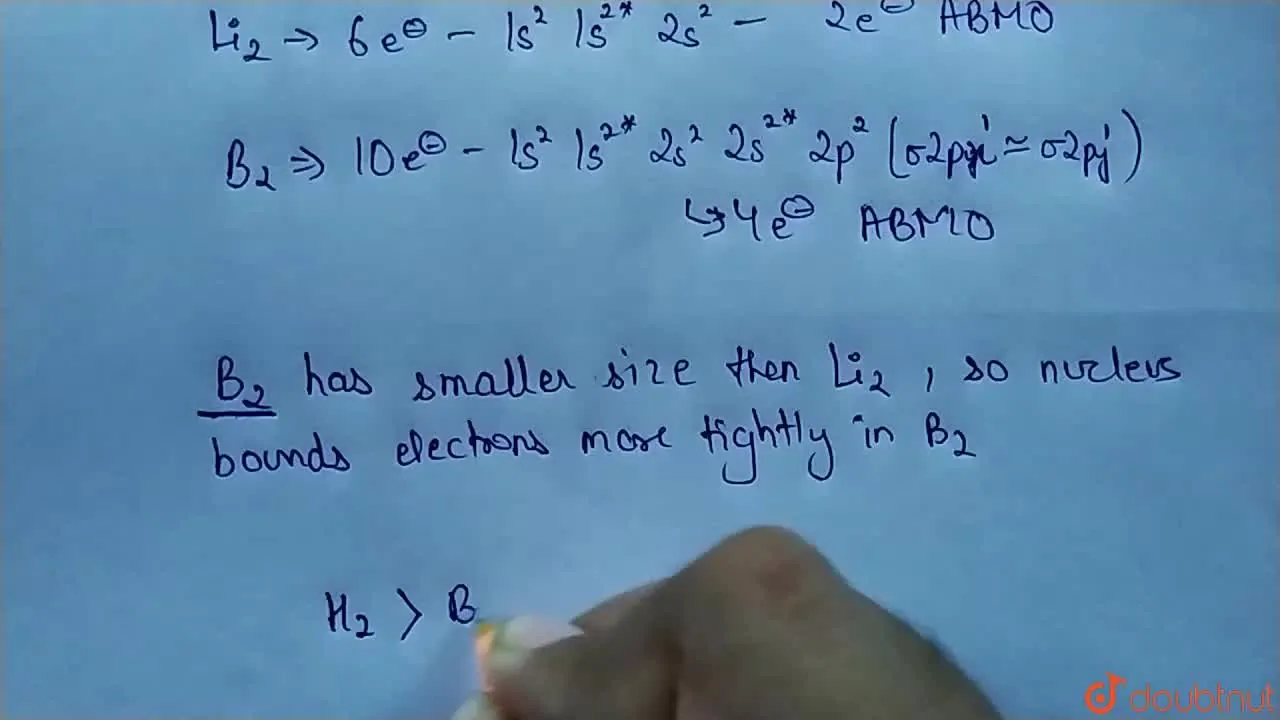 Li₂ → 6e⊖ - 1s² 1s²* 2s² - 2e⊖ ABMO
B₂ ⇒ 10e⊖ - 1s² 1s²* 2s² 2s²* 2p² (σ2px¹ ≃ σ2py¹)
↳ 4e⊖ ABMO
B₂ has smaller size then Li₂, so nucleus
bounds electrons more tightly in B₂
H₂ > B
doubtnut